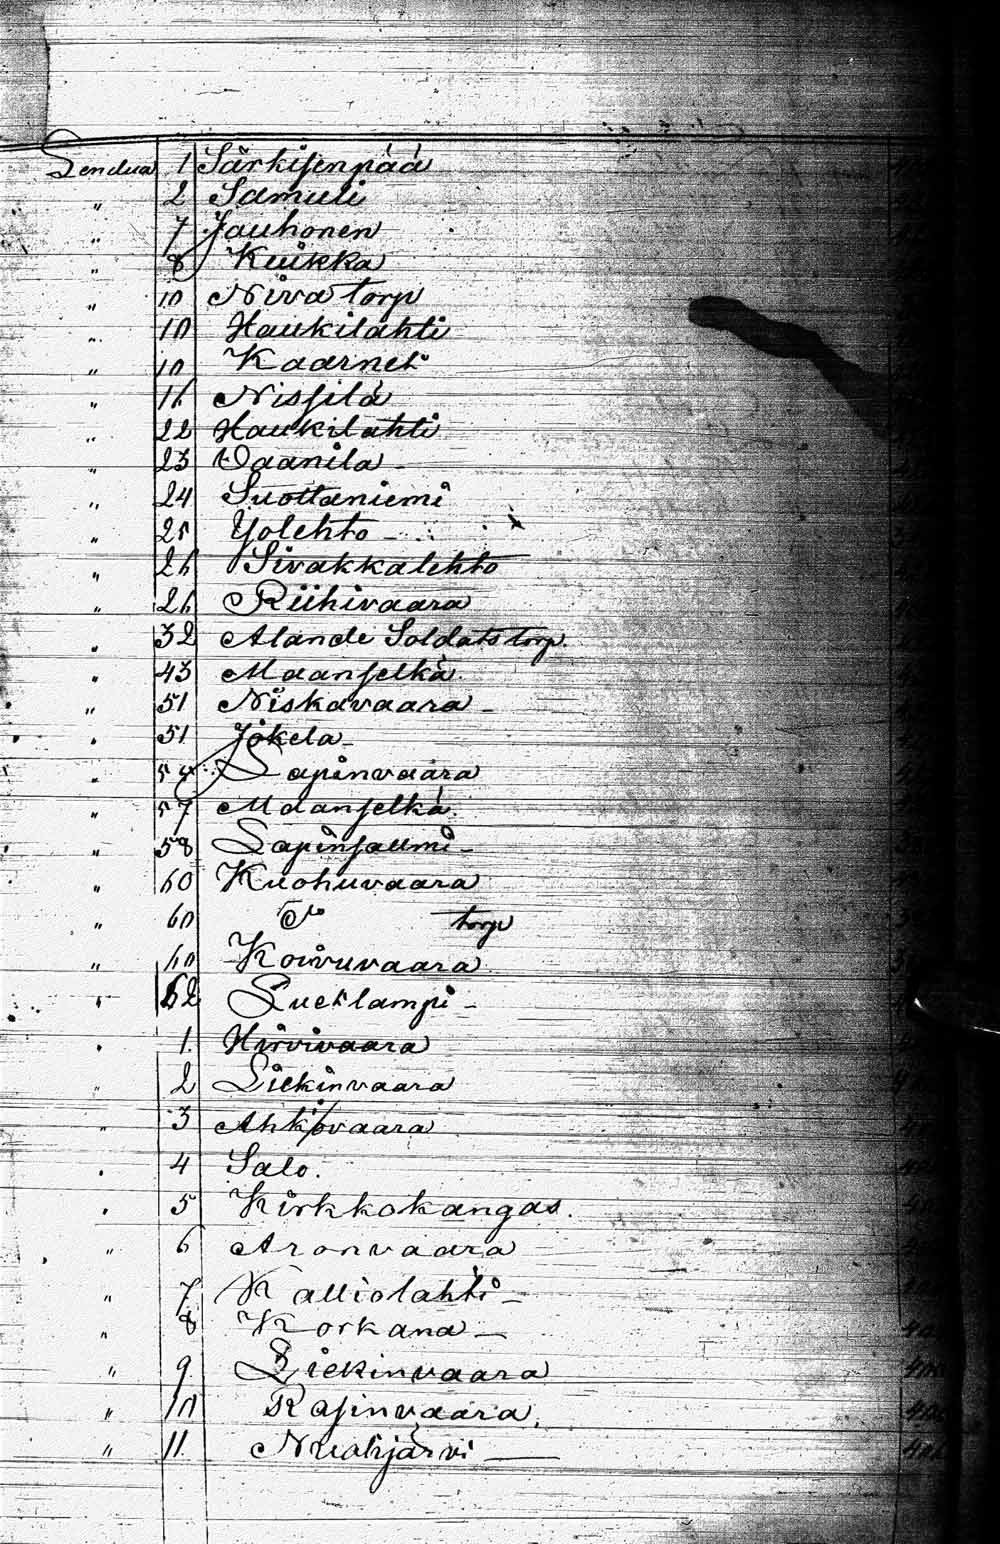 Lendua 1 Särkijenpää
" 2 Samuli
" 7 Jauhonen
" 8 Kuikka
" 10 Niva torp
" 10 Haukilahti
" 10 Kaarnet
" 11 Nissilä
" 22 Haukilahti
" 23 Vaanila
" 24 Suottaniemi
" 25 Yolehto
" 26 Sivakkalehto
" 26 Riihivaara
" 32 Alande Soldats torp.
" 43 Maanselkä
" 51 Niskavaara
" 51 Jokela
" Lapinvaara
" 57 Maanselkä
" 58 Lapinsalmi
" 60 Kuohuvaara
" 60 Do torp
" 60 Koivuvaara
" 62 Luetlampi
" 1. Hirvivaara
" 2 Liekinvaara
" 3 Ahkiovaara
" 4 Salo.
" 5 Kirkkokangas.
" 6 Aronvaara
" 7 Kalliolahti
" 8 Korkana
" 9 Liekinvaara
" 10 Rajinvaara.
" 11. Nualijärvi